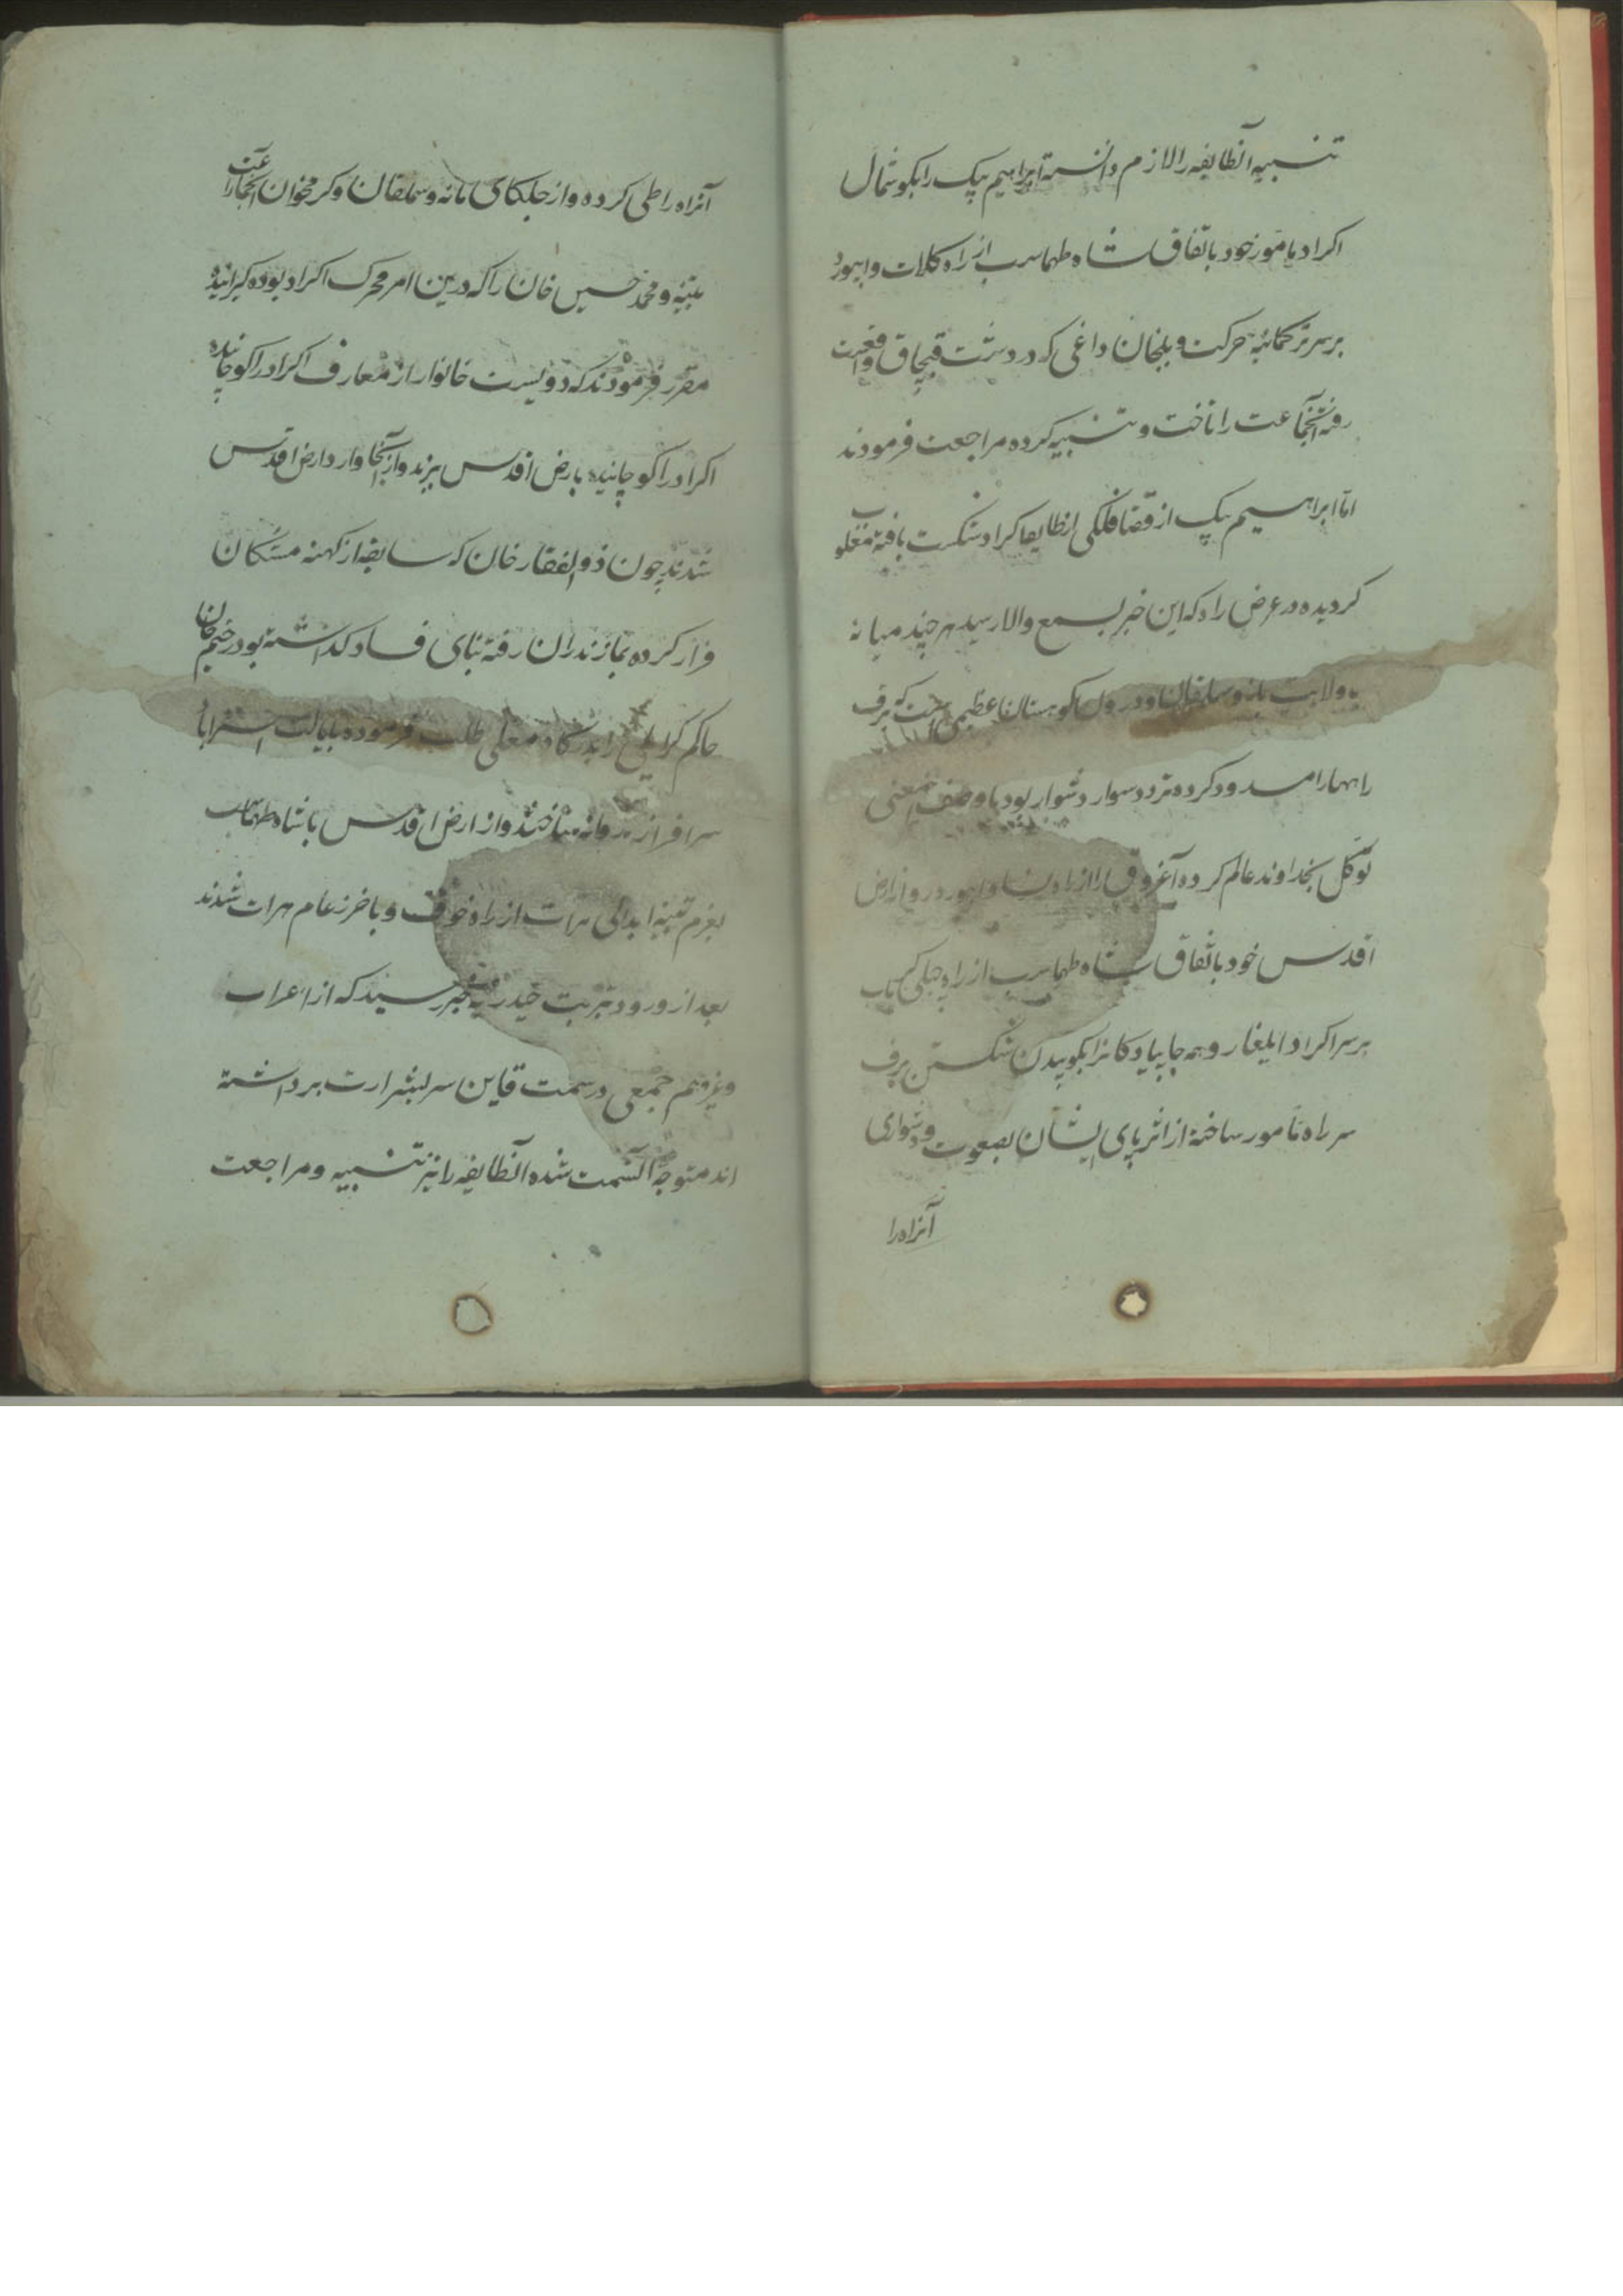 تنبیه آنطایفه را لازم دانسته ابراهیم بیک را بکوشمال
اکراد مامور خود باتفاق شاه طهماسب از راه کلات و ابیورد
بر سر ترکمانیه حرکت و بلخان داغی که در دشت قبچاق واقعست
رفته آنجماعت را تاخت و تنبیه کرده مراجعت فرمودند
اما ابراهیم بیک از قضا فلکی از طایفه اکراد شکست یافته مغلوب
کردیده در عرض راه که این خبر بسمع والا رسید هر چند میانه
ولایت و سملقان و درون کوهستان عظیمی است که برف
راهها را مسدود کرده تردد سوار دشوار بود با وصف اینمعنی
توکل بخداوند عالم کرده آغروق را از راه نسا و ابیورد روانه ارض
اقدس خود باتفاق شاه طهماسب از راه
بر سر اکراد ایلغار و همه جا پیادکانرا بکوبیدن شکستن برف
سر راه مامور ساخته از اثر پای ایشان بصعوبت و دشواری
آنراه را
آنراه را طی کرده و از جلکای مانه و سملقان و کرمخوان آنجماعت را
تنبیه و محمد حسین خان را که درین امر محرک اکراد بوده کیرانیده
مقرر فرمودند که دویست خانوار از معارف اکراد را کوچانیده
اکراد را کوچانیده بارض اقدس برند و از آنجا وارد ارض اقدس
شدند چون ذوالفقار خان که سابقه از کهنه مستکان
فرار کرده بمازندران رفته بنای فساد کذاشته بود رحیم خان
حاکم کرایلی را بدرکاه معلی طلب فرموده بایالت استراباد
سرافراز و روانه ساختند و از ارض اقدس با شاه طهماسب
بعزم تنبیه ابدالی هرات از راه خواف و باخرز عام هرات شدند
بعد از ورود بتربت حیدریه خبر رسید که از اعراب
و غیرهم جمعی در سمت قاین سر بشرارت برداشته
اند متوجه آنسمت شده آنطایفه را نیز تنبیه و مراجعت